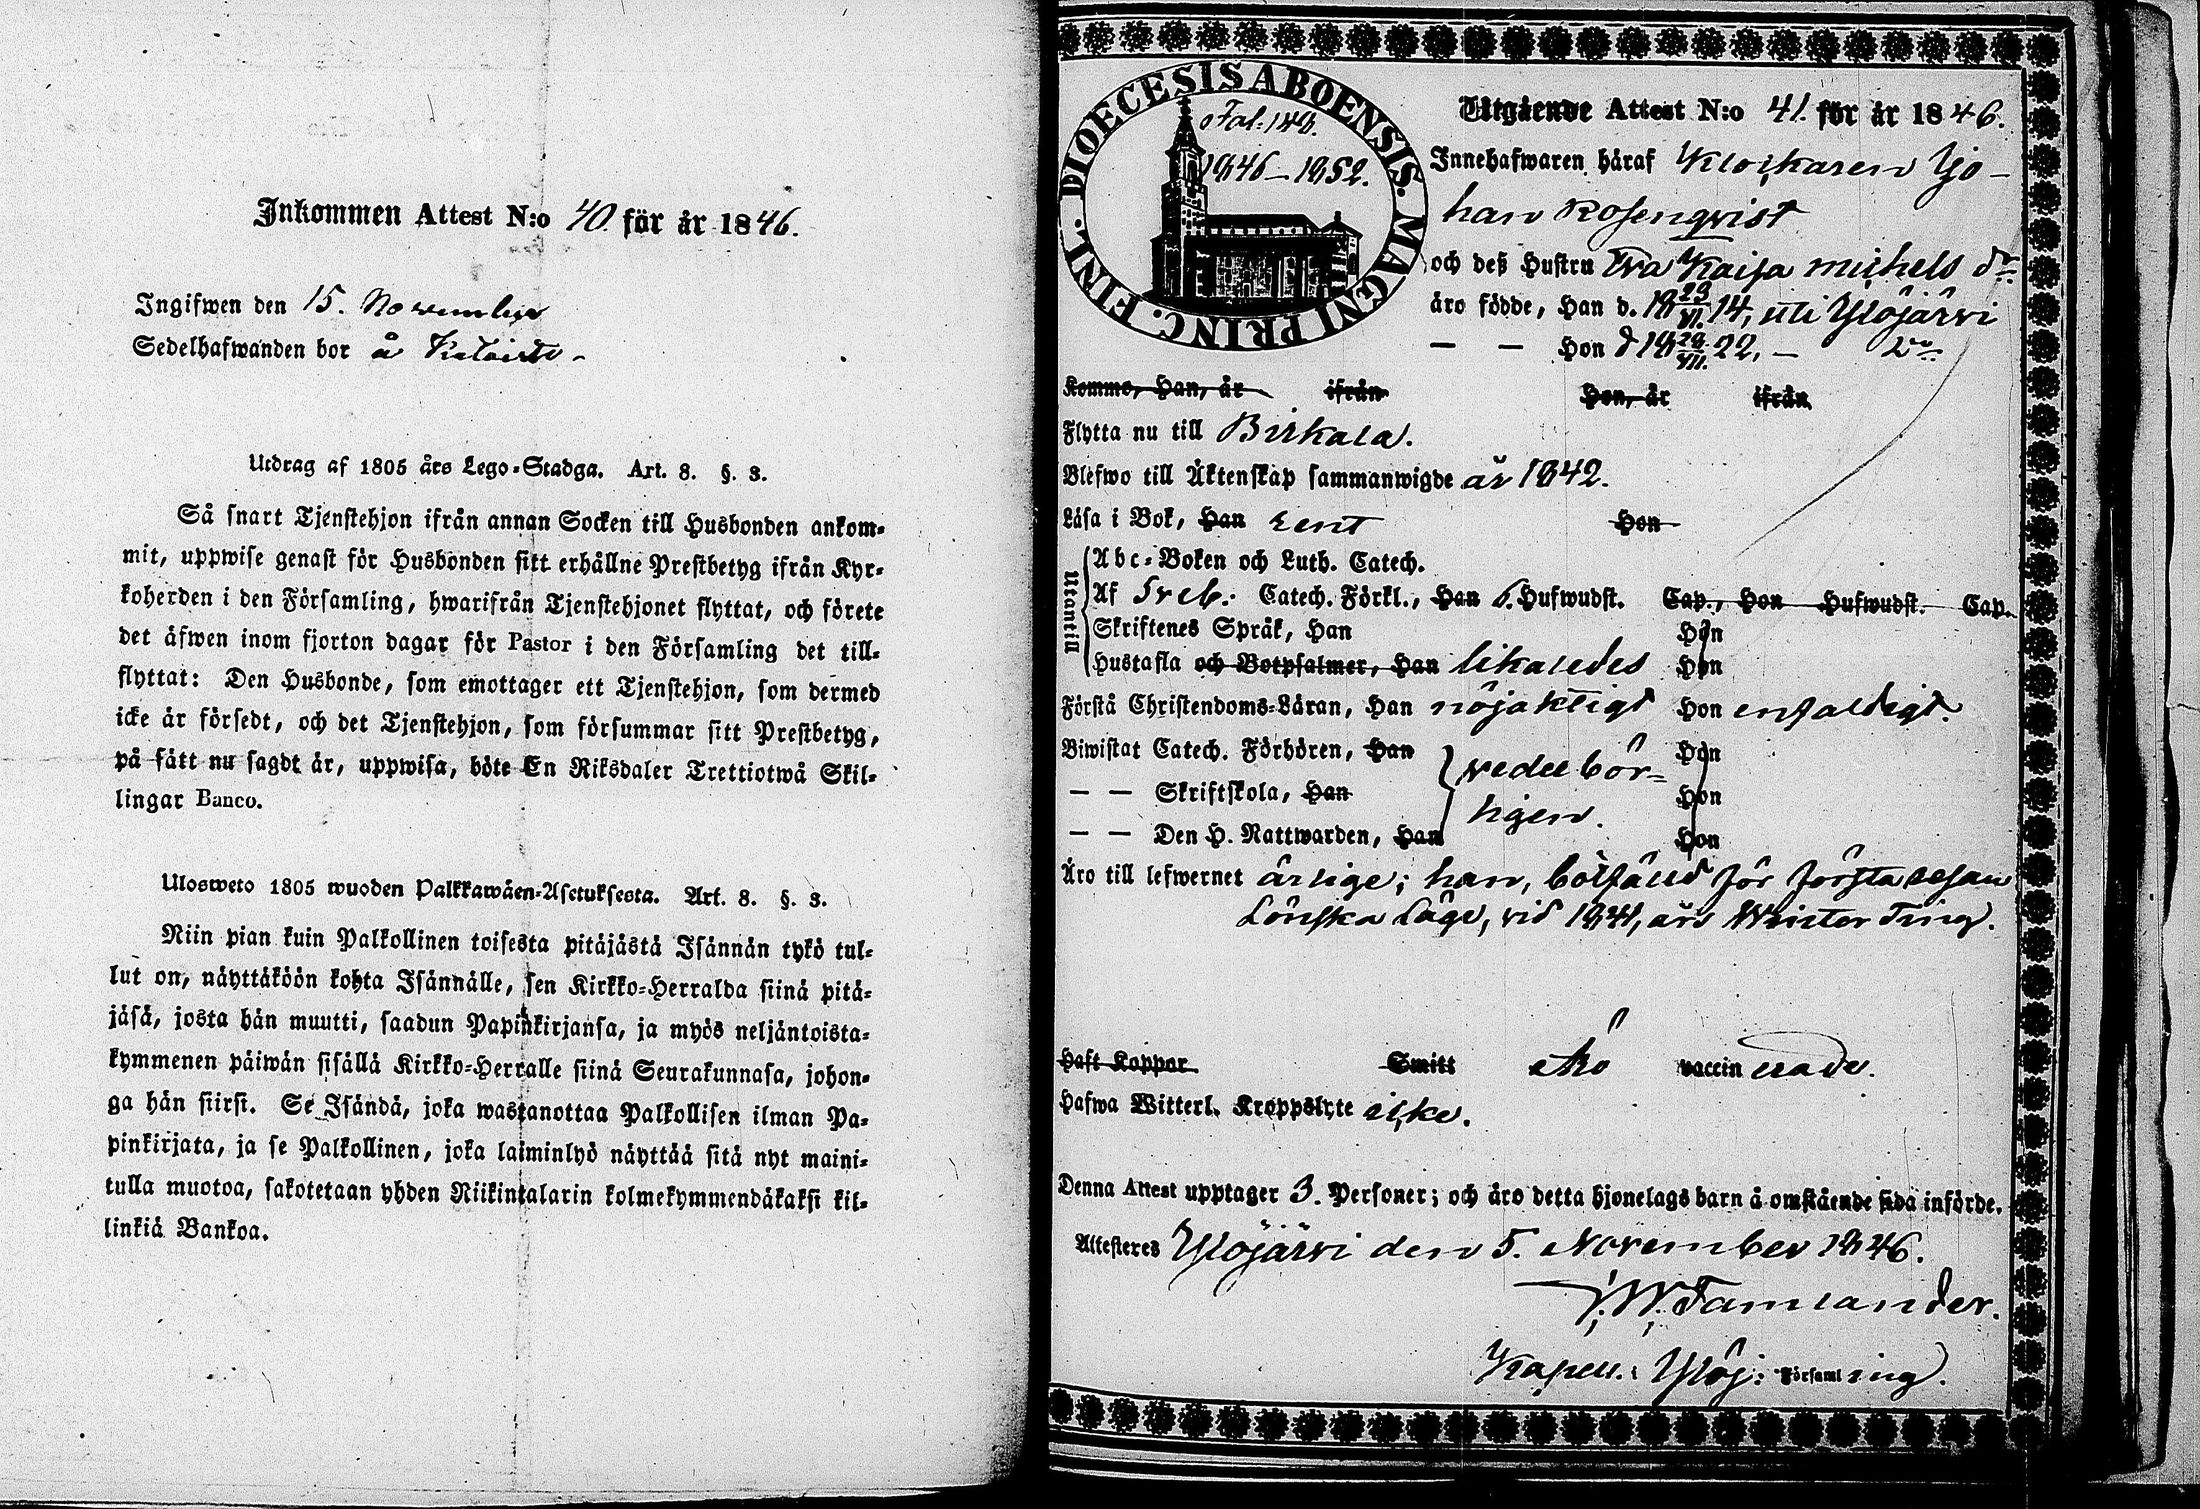 Inkommen Attest N:o 40. för år 1846.
Ingifwen den 15. November
Sedelhafwanden bor å
Utdrag af 1805 års Lego-Stadga. Art. 8. §. 3.
Så snart Tjenstehjon ifrån annan Socken till Husbonden ankom-
mit, uppwise genast för Husbonden sitt erhållne Prestbetyg ifrån Kyr-
koherden i den Församling, hwarifrån Tjenstehjonet flyttat, och förete
det äfwen inom fjorton dagar för Pastor i den Församling det till-
flyttat: Den Husbonde, som emottager ett Tjenstehjon, som dermed
icke är försedt, och det Tjenstehjon, som försummar sitt Prestbetyg,
på sätt nu sagdt är, uppwisa, böte En Riksdaler Trettiotwå Skil-
lingar Banco.
Ulosweto 1805 wuoden Palkkawäen-Asetuksesta. Art. 8. §. 3.
Niin pian kuin Palkollinen toisesta pitäjästä Isännän tykö tul-
lut on, näyttäköön kohta Isännälle, sen Kirkko-Herralda siinä pitä-
jäsä, josta hän muutti, saadun Papinkirjansa, ja myös neljäntoista-
kymmenen päiwän sisällä Kirkko-Herralle siinä Seurakunnasa, johon-
ga hän siirsi. Se Isändä, joka wastanottaa Palkollisen ilman Pa-
pinkirjata, ja se Palkollinen, joka laiminlyö näyttää sitä nyt maini-
tulla muotoa, sakotetaan yhden Riikintalarin kolmekymmendäkaksi kil-
linkiä Bankoa.
FINL. DIOECESIS ABOENSIS. MAGNI PRINC.
Fol: 148.
1846–1852.
Utgående Attest N:o 41. för år 1846.
Innehafwaren häraf Klockaren Jo-
han Rosenqvist
och deß Hustru Eva Kaisa Michels dr
äro födde, Han d. 18 23/VI. 14, uti Ylöjärvi
— — Hon d 18 29/VII. 22, – Do
Komme, Han, år ifrån Hon, år ifrån
Flytta nu till Birkala.
Blefwo till Äktenskap sammanwigde år 1842.
Läsa i Bok, Han rent Hon
Utantill
Abc-Boken och Luth. Catech.
Af Sveb: Catech. Förkl., Han 6. Hufwudst. Cap., Hon Hufwudst. Cap.
Skriftenes Språk, Han Hon
Hustafla och Botpsalmer, Han likaledes Hon
Förstå Christendoms-Läran, Han nöjaktigt Hon enfaldigt.
Biwistat Catech. Förhören, Han vederbör- Hon
— — Skriftskola, Han ligen. Hon
— — Den H. Nattwarden, Han Hon
Äro till lefwernet ärlige; han, bötfäld för första resan
Lönska läge, vid 1841, års Winter Ting.
Haft Koppor Smitt Äro vaccin erade.
Hafwa Witterl. Kroppslyte icke.
Denna Attest upptager 3. Personer; och äro detta hjonelags barn å omstående sida införde.
Attesteres Ylöjärvi den 5. November 1846.
J. W. Tamlander.
Kapell. i Ylöj: Församl ing.